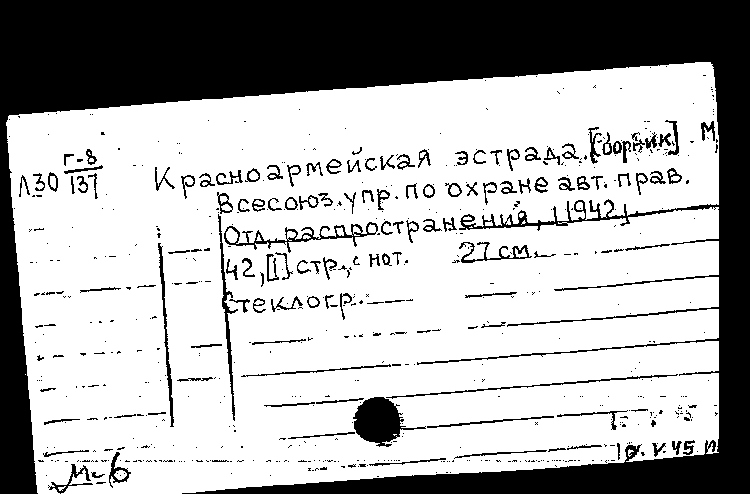 Г-8
Л30 137
Красноармейская эстрада. [Сборник]. М,
Всесоюз. упр. по охране авт. прав.
Отд. распространения, [1942].
42,[1] стр., с нот. 27 см.
Стеклогр.
V 45
V.45
М-6